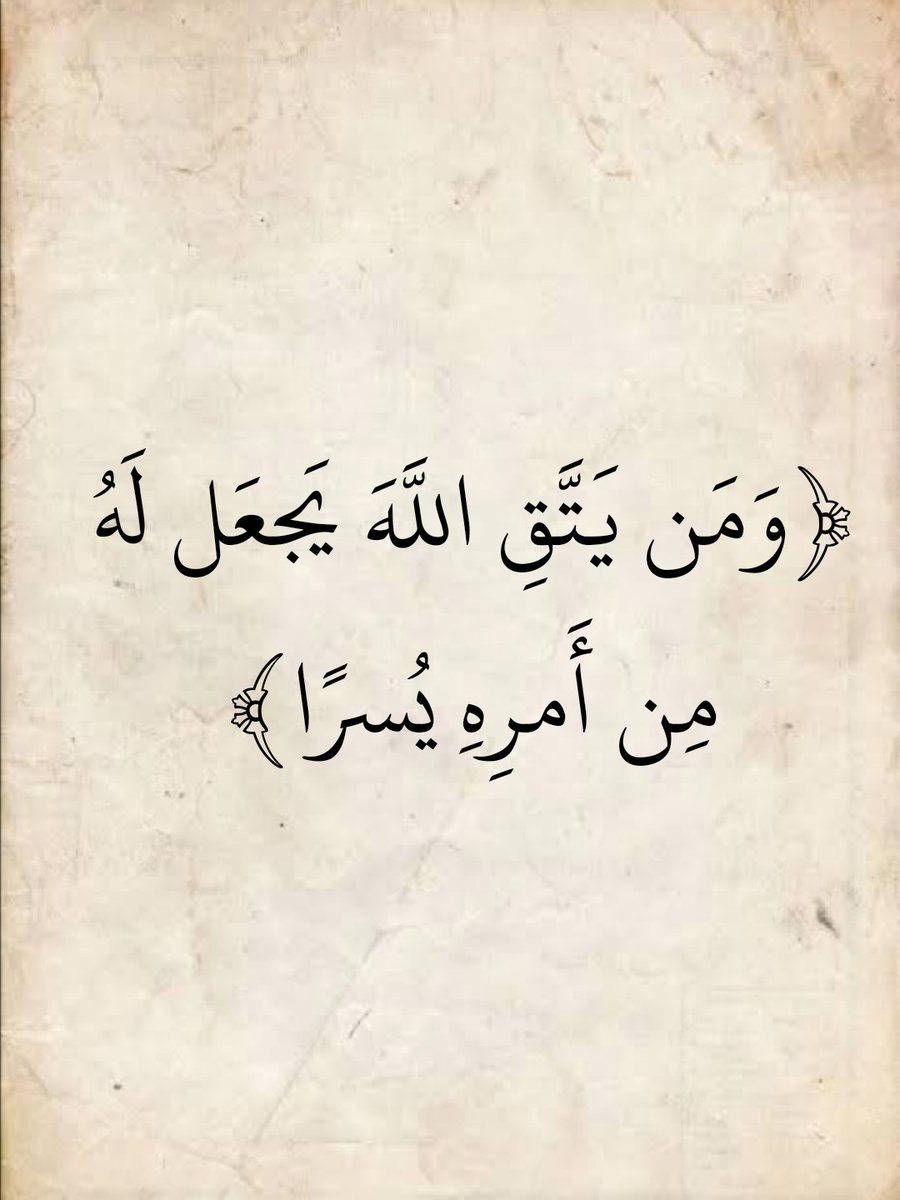 ﴿وَمَن يَتَّقِ اللَّهَ يَجعَل لَهُ
مِن أَمرِهِ يُسرًا﴾